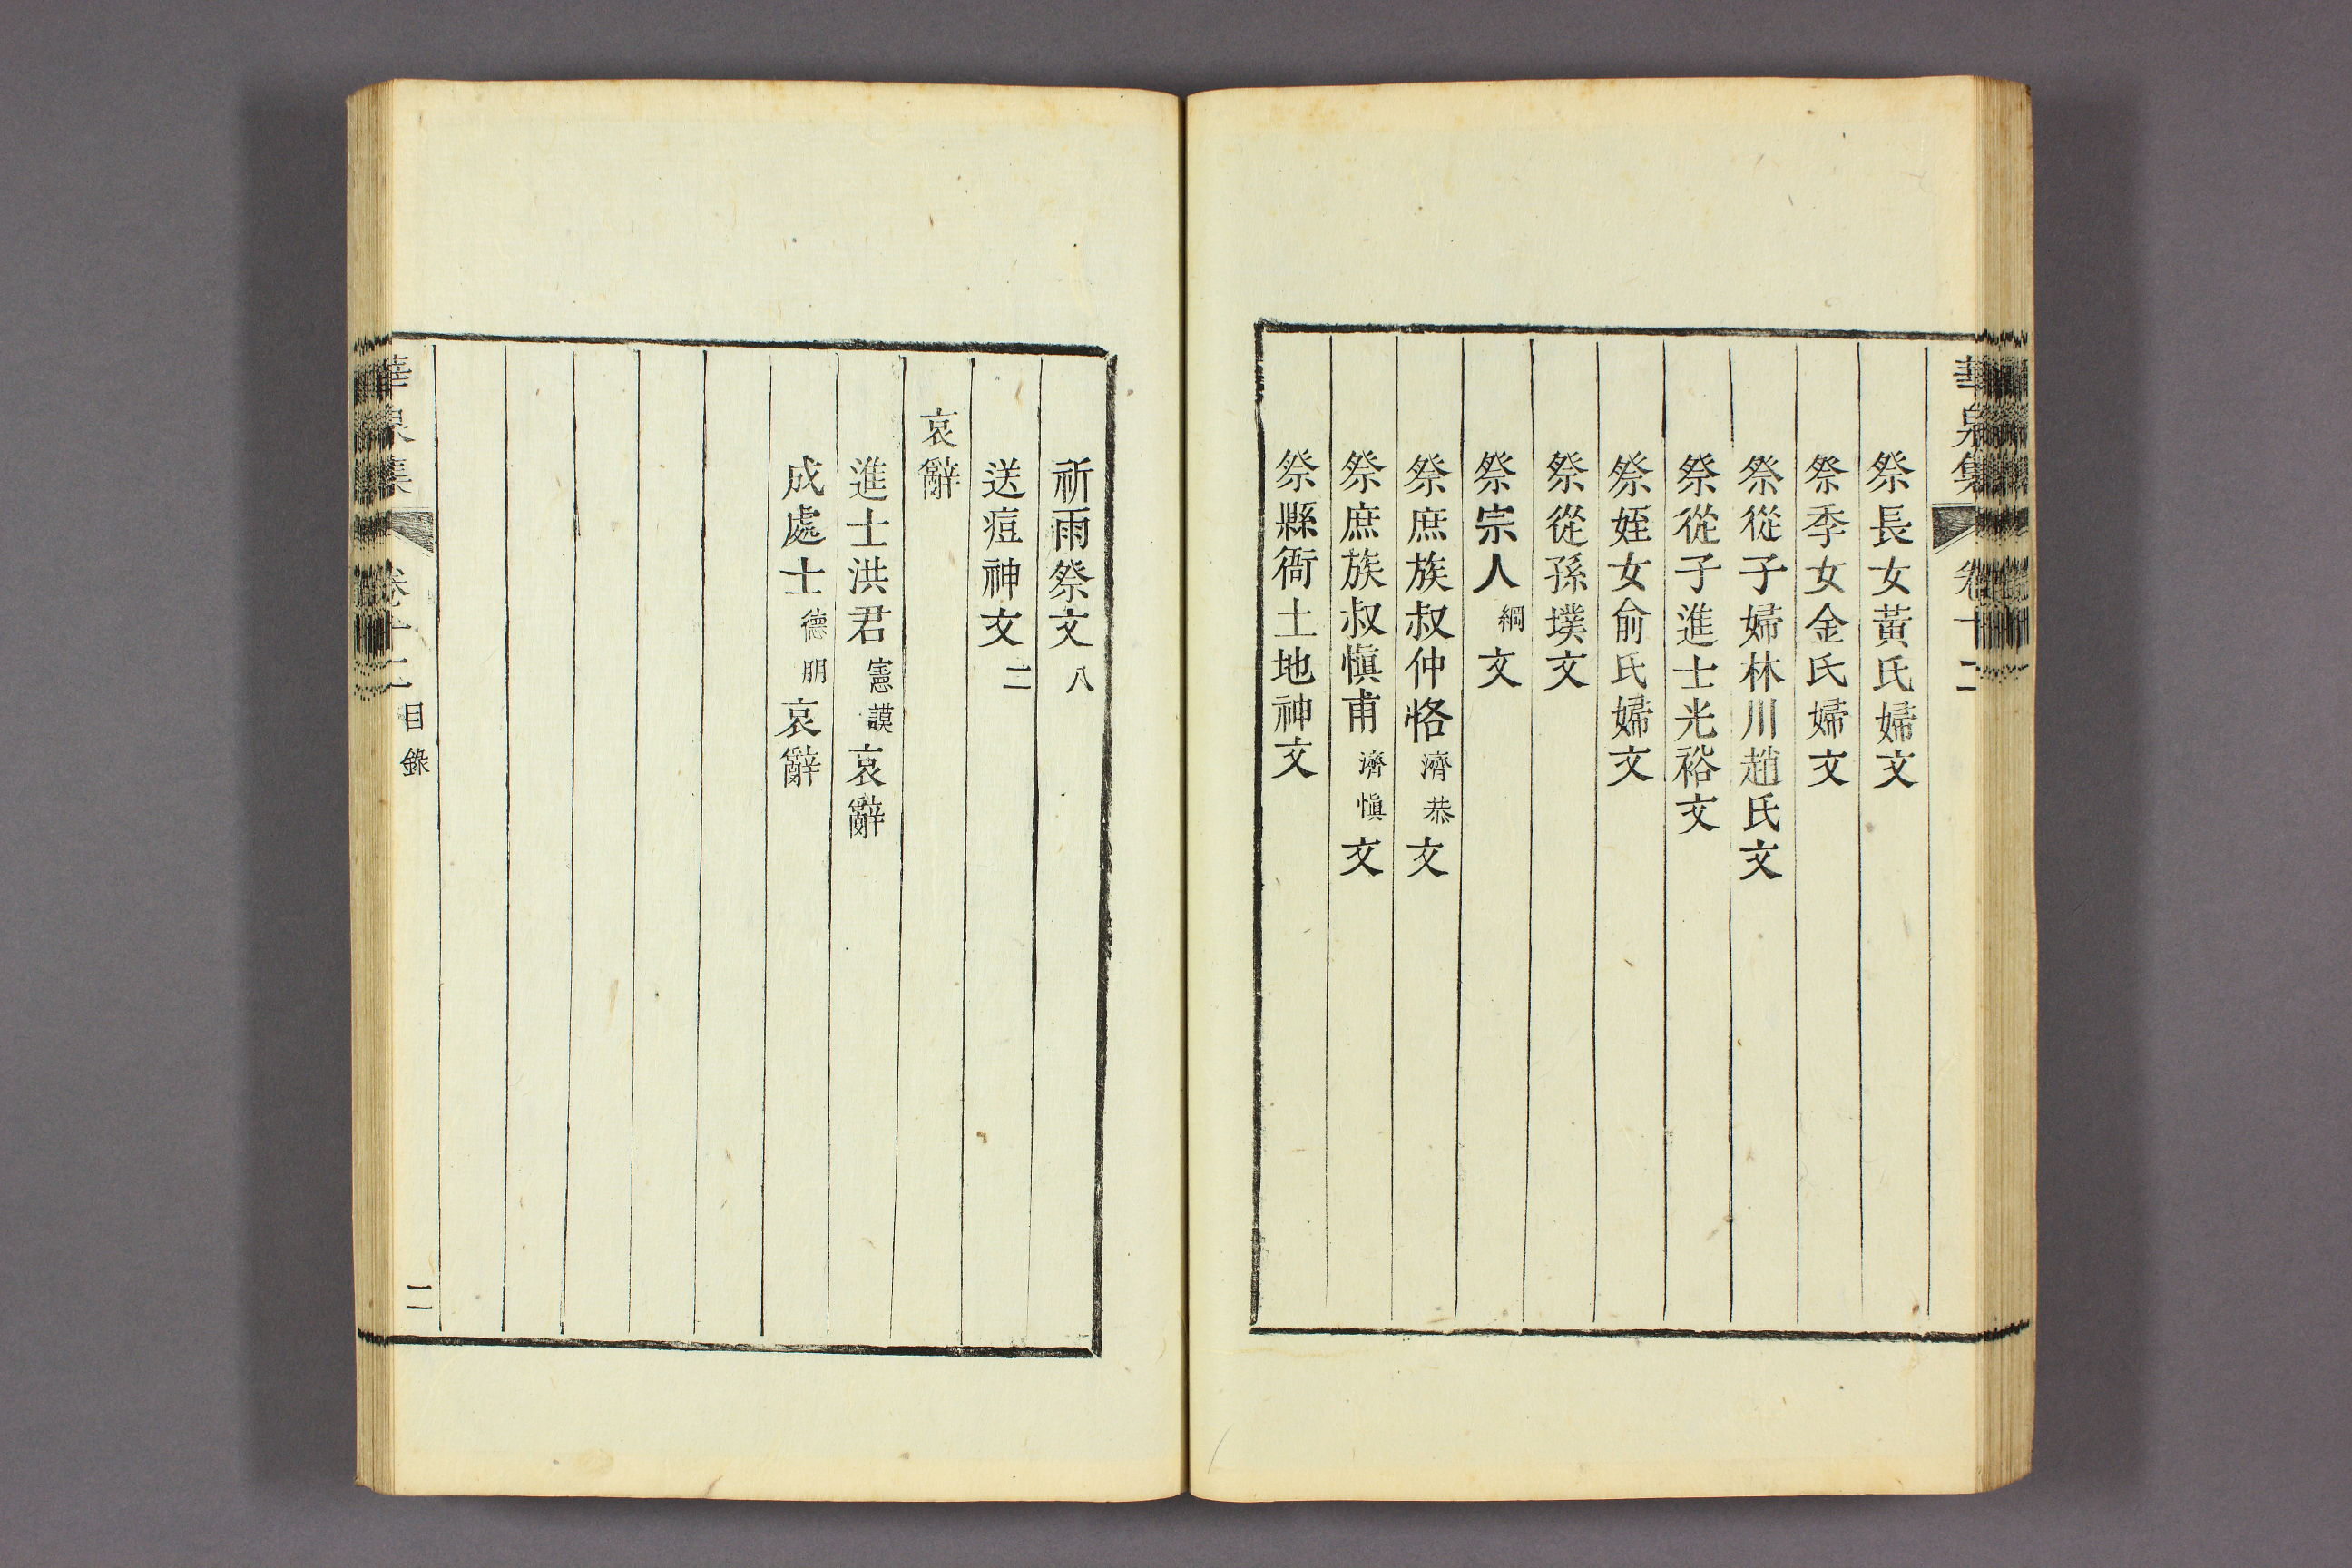 華泉集 卷十二
祭長女黃氏婦文
祭季女金氏婦文
祭從子婦林川趙氏文
祭從子進士光裕文
祭姪女俞氏婦文
祭從孫墣文
祭宗人綱文
祭庶族叔仲恪濟恭文
祭庶族叔愼甫濟愼文
祭縣衙土地神文
祈雨祭文八
送痘神文二
哀辭
進士洪君憲謨哀辭
成處士德朋哀辭
華泉集 卷十二 目錄 二